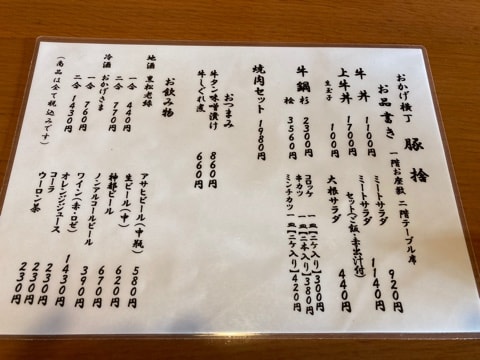 おかげ横丁 豚捨
お品書き 一階お座敷 二階テーブル席
牛丼 1100円
上牛丼 1700円
生玉子 100円
牛鍋 杉 2300円
桧 3560円
焼肉セット 1980円
おつまみ
牛タン味噌漬け 860円
牛しぐれ煮 660円
お飲み物
地酒 黒松老緑
一合 440円
二合 770円
冷酒 おかげさま
一合 760円
二合 1430円
(商品は全て税込みです)
ミートサラダ 920円
ミートサラダ
セット(ご飯・赤出汁付) 1140円
大根サラダ 440円
コロッケ 一皿(二ケ入り)300円
串カツ 一皿(二本入り)380円
ミンチカツ 一皿(二ケ入り)420円
アサヒビール(中瓶) 580円
生ビール(中) 620円
神都ビール 670円
ノンアルコールビール 390円
ワイン(赤・ロゼ) 1430円
オレンジジュース 230円
コーラ 230円
ウーロン茶 230円